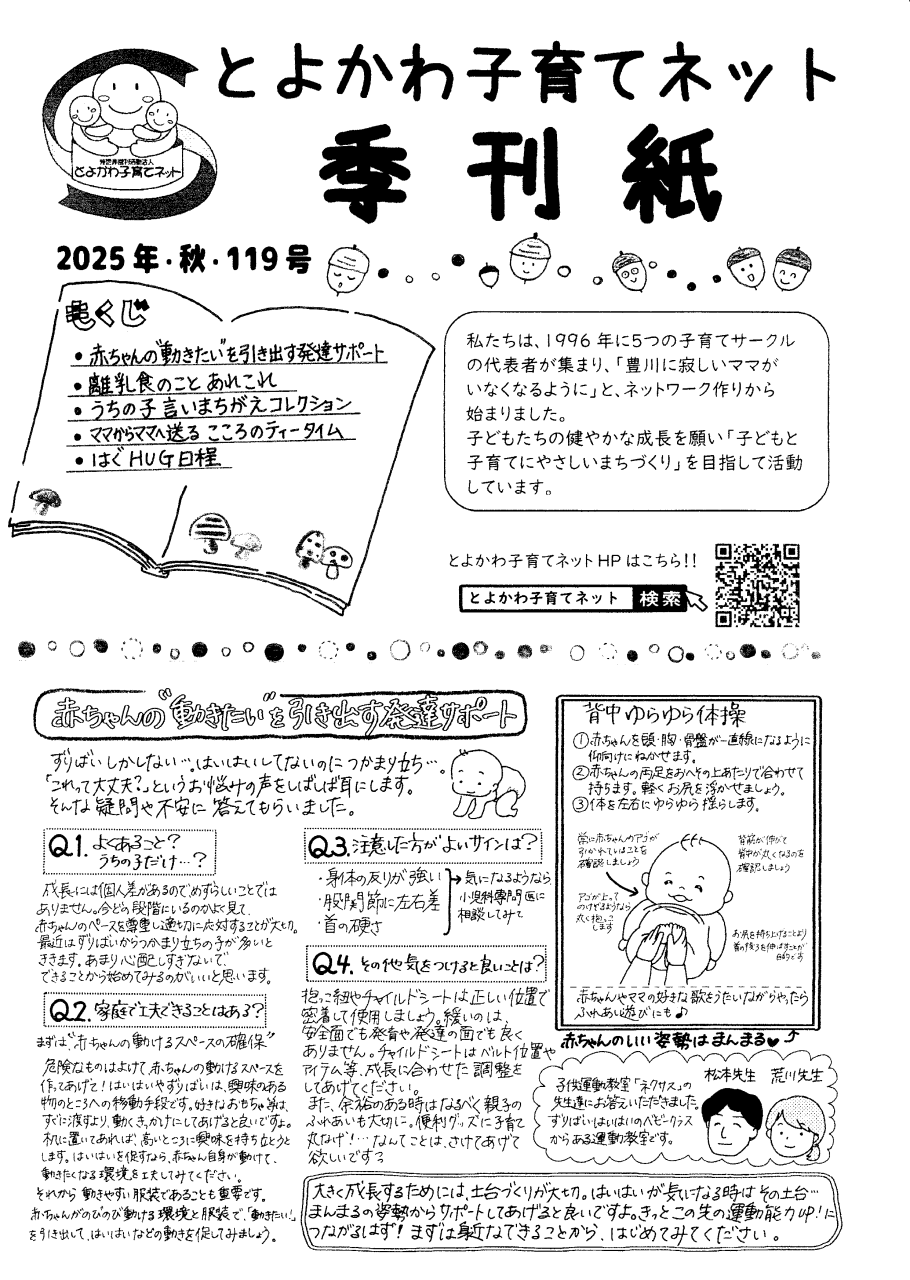 とよかわ子育てネット
季刊紙
特定非営利活動法人
とよかわ子育てネット
2025年・秋・119号
もくじ
・赤ちゃんの"動きたい"を引き出す発達サポート
・離乳食のこと あれこれ
・うちの子言いまちがえコレクション
・ママからママへ送る こころのティータイム
・はぐHUG日程
私たちは、1996年に5つの子育てサークル
の代表者が集まり、「豊川に寂しいママが
いなくなるように」と、ネットワーク作りから
始まりました。
子どもたちの健やかな成長を願い「子どもと
子育てにやさしいまちづくり」を目指して活動
しています。
とよかわ子育てネットHPはこちら!!
とよかわ子育てネット 検索
赤ちゃんの"動きたい"を引き出す発達サポート
ずりばいしかしない…。はいはいしてないのにつかまり立ち…。
「これって大丈夫?」というお悩みの声をしばしば耳にします。
そんな疑問や不安に答えてもらいました。
Q1. よくあること?
うちの子だけ…?
成長には個人差があるのでめずらしいことでは
ありません。今どの段階にいるのかよく見て、
赤ちゃんのペースを尊重し適切に応対することが大切。
最近はずりばいからつかまり立ちの子が多いと
ききます。あまり心配しすぎないで、
できることから始めてみるのがいいと思います。
Q2. 家庭で工夫できることはある?
まずは"赤ちゃんの動けるスペースの確保"
危険なものはよけて、赤ちゃんの動けるスペースを
作ってあげて!はいはいやずりばいは、興味のある
物のところへの移動手段です。好きなおもちゃ等は、
すぐに渡すより、動くきっかけにしてあげると良いですよ。
机に置いてあれば、高いところに興味を持ち立とうと
します。はいはいを促すなら、赤ちゃん自身が動けて、
動きたくなる環境を工夫してみてください。
それから 動きやすい服装であることも重要です。
赤ちゃんがのびのび動ける環境と服装で、「動きたい!」
を引き出して、はいはいなどの動きを促してみましょう。
Q3. 注意した方がよいサインは?
・身体の反りが強い
・股関節に左右差
・首の硬さ
→気になるようなら、
小児科専門医に
相談してみて
Q4. その他気をつけると良いことは?
抱っこ紐やチャイルドシートは正しい位置で
密着して使用しましょう。緩いのは、
安全面でも発育や発達の面でも良く
ありません。チャイルドシートはベルト位置や
アイテム等、成長に合わせた調整を
してあげてください。
また、余裕のある時はなるべく親子の
ふれあいも大切に。便利グッズに子育て
丸なげ!…なんてことは、さけてあげて
欲しいです?
背中ゆらゆら体操
①赤ちゃんを頭・胸・骨盤が一直線になるように
仰向けにねかせます。
②赤ちゃんの両足をおへその上あたりで合わせて
持ちます。軽くお尻を浮かせましょう。
③体を左右にゆらゆら揺らします。
常に赤ちゃんのアゴが
引かれていることを
確認しましょう
背筋が伸びて
背中が丸くなるのを
確認しましょう
アゴが上って
のけぞるようなら
丸く抱っこ
します
お尻を持ち上げることより
首の後ろを伸ばすことが
目的です
赤ちゃんやママの好きな歌をうたいながらやったら
ふれあい遊びにも♪
赤ちゃんのいい姿勢はまんまる♥
子供運動教室「ネクサス」の
先生達にお答えいただきました。
ずりばいはいはいのベビークラス
からある運動教室です。
松本先生 荒川先生
大きく成長するためには、土台づくりが大切。はいはいが気になる時はその土台…
まんまるの姿勢からサポートしてあげると良いですよ。きっとこの先の運動能力UP!に
つながるはず!まずは身近なできることから、はじめてみてください。